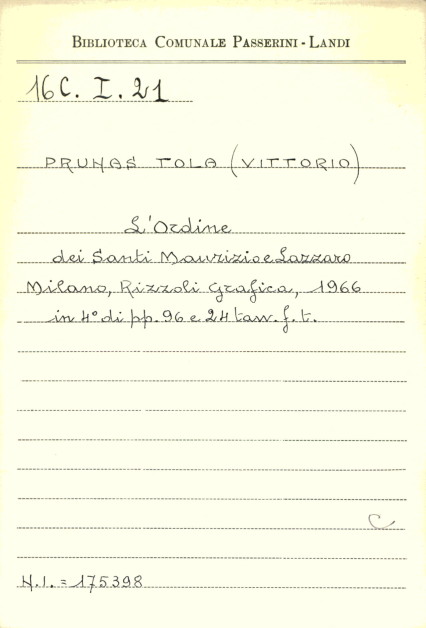 BIBLIOTECA COMUNALE PASSERINI - LANDI
16C. I. 21
PRUNAS TOLA (VITTORIO)
L'Ordine
dei Santi Maurizio e Lazzaro
Milano, Rizzoli Grafica, 1966
in 4° di pp. 96 e 24 tav. f. t.
C
N.I. = 175398